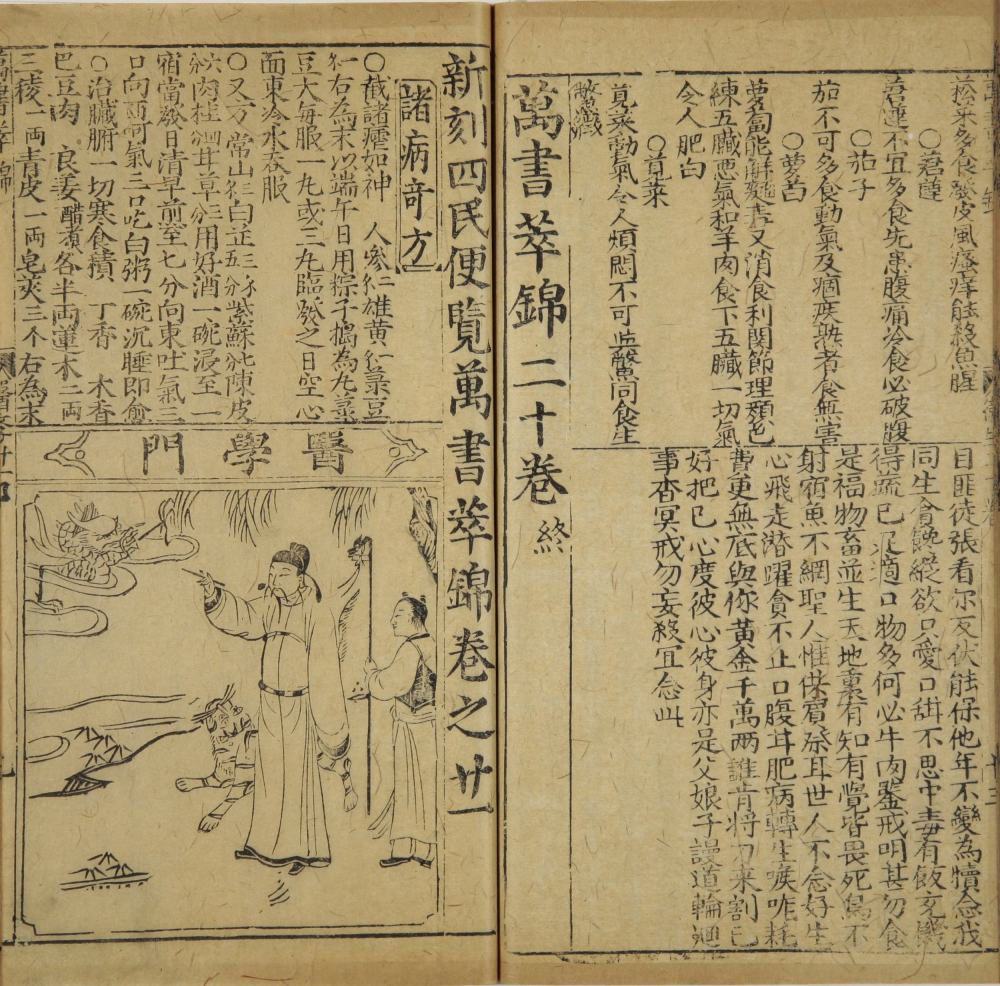 菘菜多食發皮風瘙痒能殺魚腥
○莙薘
莙薘不宜多食先患腹痛冷食必破腹
○茄子
茄不可多食動氣及痼疾熟者食無害
○蘿苩
蘿蔔能解麵毒又消食利関節理顏色
練五臓惡氣和羊肉食下五臓一切氣
令人肥白
○莧菜
莧菜動氣令人煩悶不可与鱉同食生
目匪徒張看尔皮伏能保他年不變為犢念我
同生貪饞縱欲只愛口甜不思中毒有飯充饑
得蔬已足適口物多何必牛肉鑒戒明甚勿食
是福物畜並生天地稟有知有覺皆畏死鳥不
射宿魚不網聖人惟供賓祭耳世人不念好生
心飛走潜躍貪不止口腹甘肥病轉生喉咋耗
費更無底與你黃金千萬兩誰肯將刀来割己
好把己心度彼心彼身亦是父娘子謾道輪迴
事杳冥戒勿妄殺宜念此
萬書萃錦二十卷 終
新刻四民便覽萬書萃錦卷之廿一
諸病奇方
○截諸瘧如神 人參仁雄黃仁菉豆
仁右為末以端午日用粽子搗為丸菉
豆大每服一丸或三丸臨發之日空心
面東冷水吞服
○又方 常山仁白芷五分紫蘇分陳皮
六分肉桂四分甘草三分用好酒一碗浸至一
宿當發日清早煎至七分向東吐氣三
口向西呵氣三口吃白粥一碗沉睡即愈
○治臟腑一切寒食積 丁香 木香
巴豆肉 良姜醋煮各半両蓬术二両
三稜一両青皮一両皂荚三个右為末
醫學門